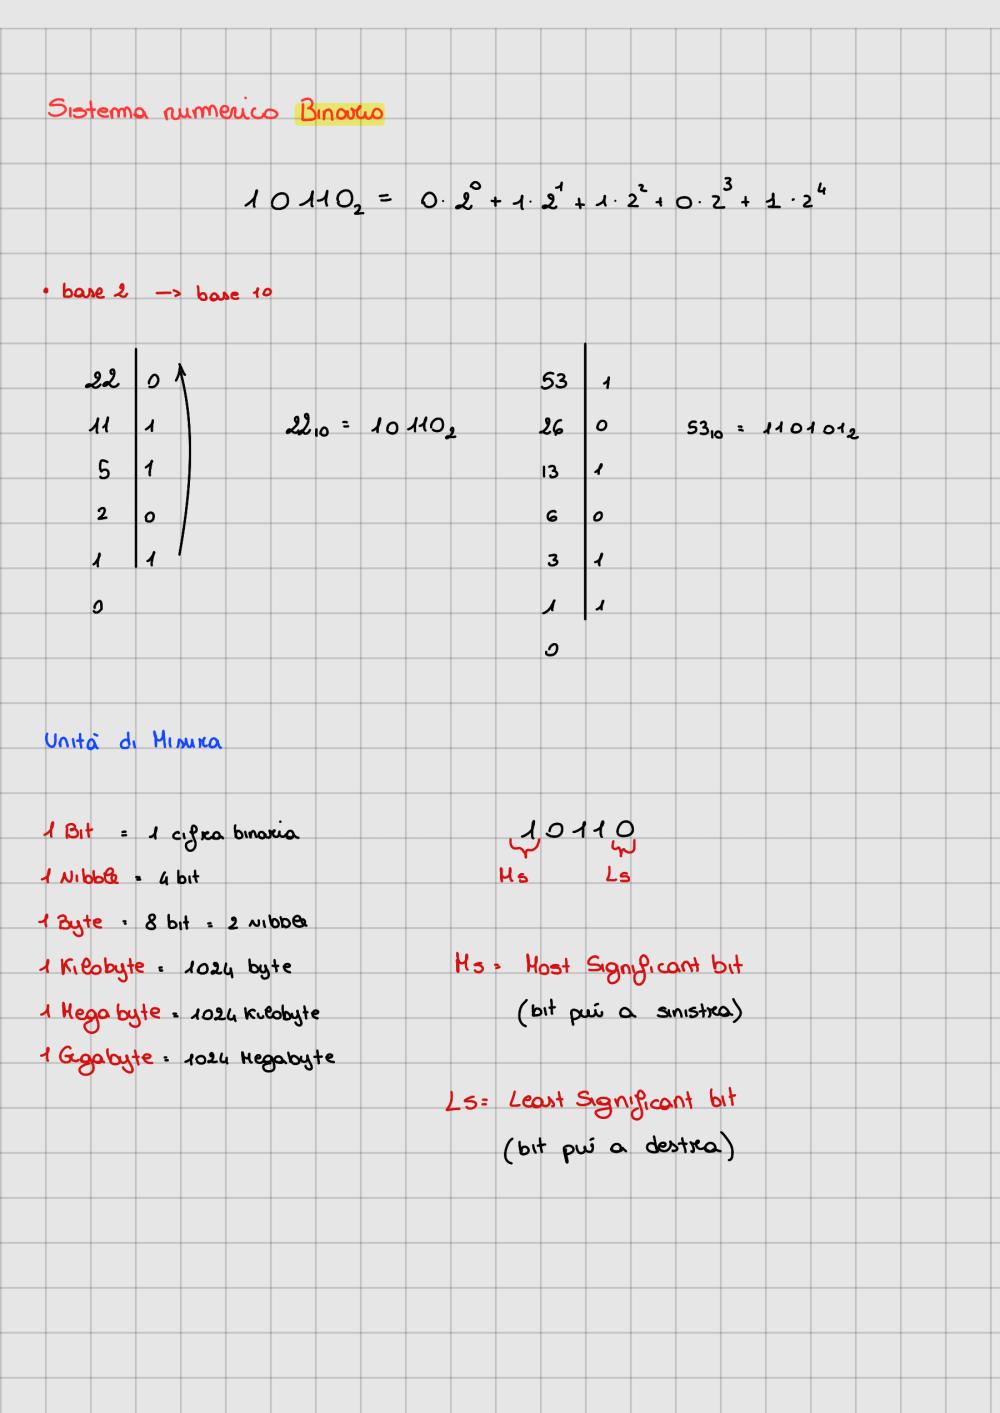 Sistema numerico Binario
10110₂ = 0·2⁰ + 1·2¹ + 1·2² + 0·2³ + 1·2⁴
• base 2 -> base 10
22 | 0
11 | 1
5 | 1
2 | 0
1 | 1
0
22₁₀ = 10110₂
53 | 1
26 | 0
13 | 1
6 | 0
3 | 1
1 | 1
0
53₁₀ = 110101₂
Unità di Misura
1 Bit = 1 cifra binaria
1 Nibble = 4 bit
1 Byte = 8 bit = 2 nibble
1 Kilobyte = 1024 byte
1 Megabyte = 1024 Kilobyte
1 Gigabyte = 1024 Megabyte
10110
Ms Ls
Ms = Most Significant bit
(bit puí a sinistra)
Ls = Least Significant bit
(bit puí a destra)